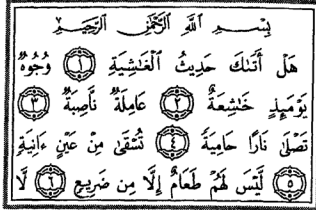 بِسْمِ اللَّهِ الرَّحْمَٰنِ الرَّحِيمِ
هَلْ أَتَىٰكَ حَدِيثُ ٱلْغَٰشِيَةِ ١ وُجُوهٌ
يَوْمَئِذٍ خَٰشِعَةٌ ٢ عَامِلَةٌ نَّاصِبَةٌ ٣
تَصْلَىٰ نَارًا حَامِيَةً ٤ تُسْقَىٰ مِنْ عَيْنٍ ءَانِيَةٍ
٥ لَّيْسَ لَهُمْ طَعَامٌ إِلَّا مِن ضَرِيعٍ ٦ لَّا